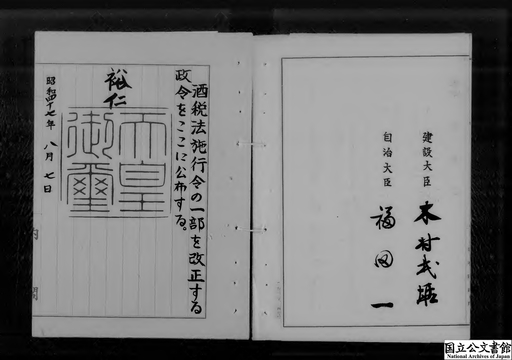 建設大臣 木村武雄
自治大臣 福田一
酒税法施行令の一部を改正する
政令をここに公布する。
裕仁
天皇
御璽
昭和四十七年 八月 七日
内閣
国立公文書館
National Archives of Japan